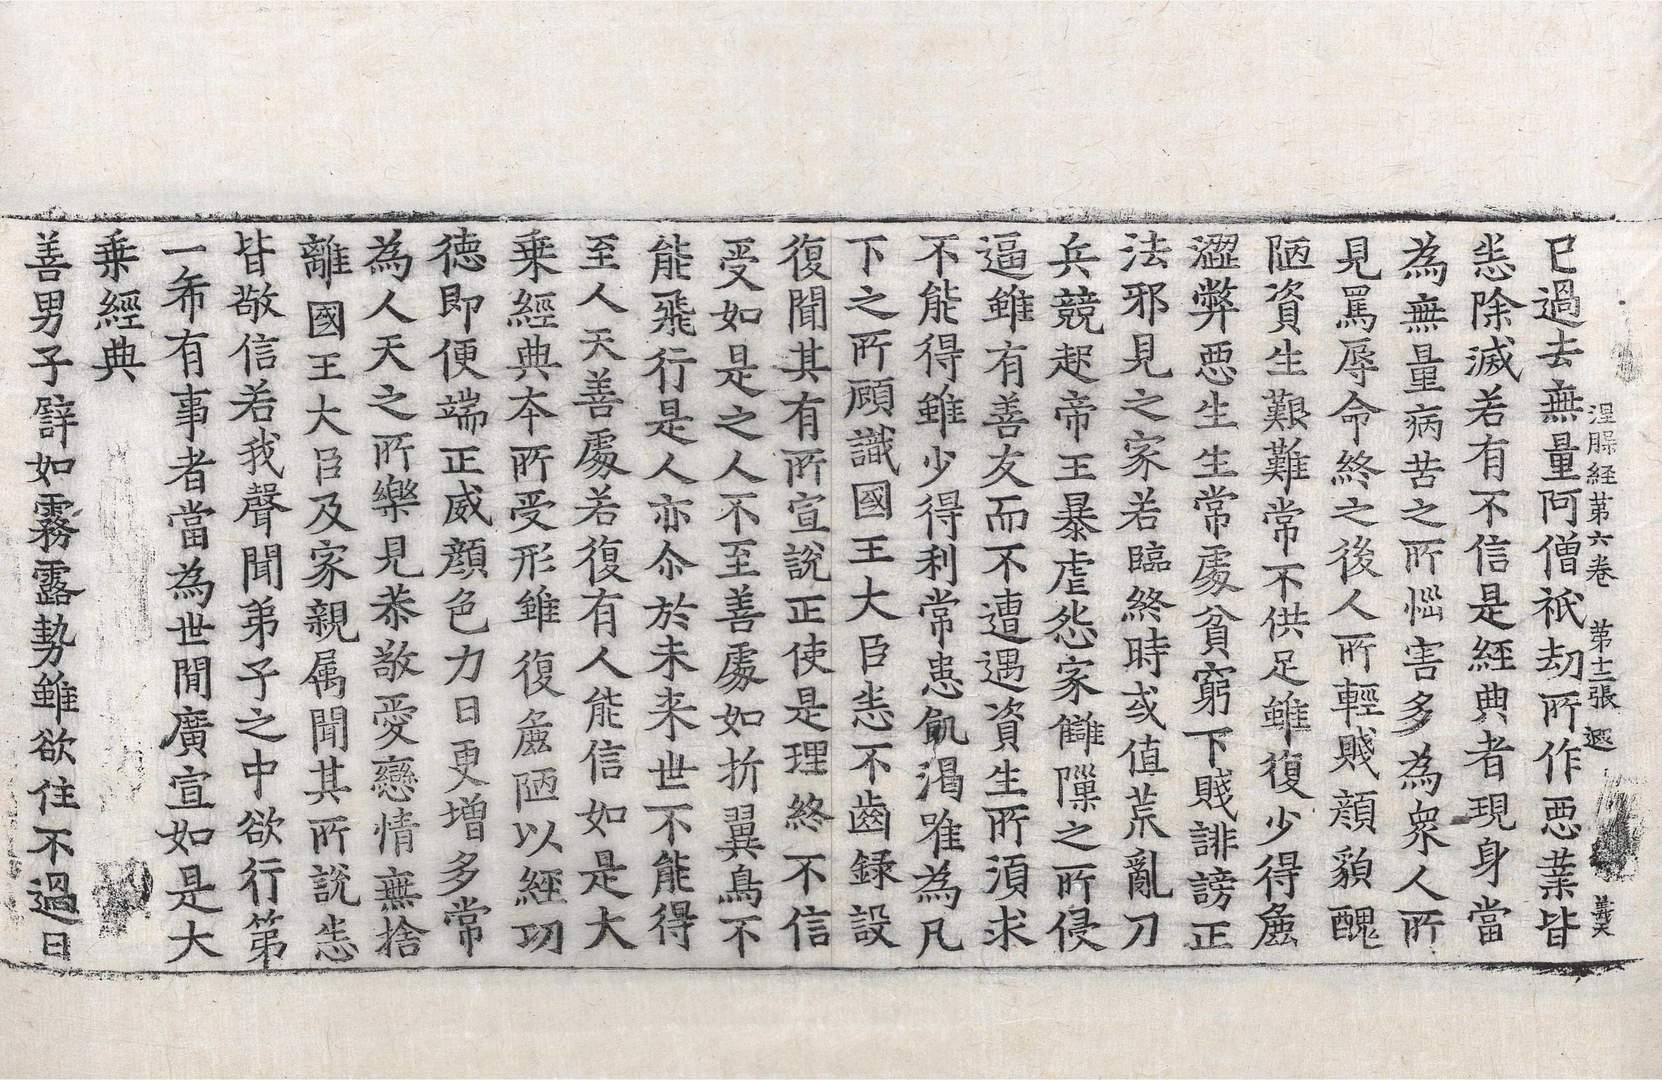 涅槃経苐六卷　苐十二張　遐　義天
已過去無量阿僧祇劫所作惡業皆
悉除滅若有不信是經典者現身當
為無量病苦之所惱害多為衆人所
見罵辱命終之後人所輕賤顔貌醜
陋資生艱難常不供足雖復少得麁
澀弊惡生生常處貧窮下賤誹謗正
法邪見之家若臨終時或值荒亂刀
兵競起帝王暴虐怨家讎隟之所侵
逼雖有善友而不遭遇資生所須求
不能得雖少得利常患飢渴唯為凡
下之所顧識國王大臣悉不齒録設
復聞其有所宣說正使是理終不信
受如是之人不至善處如折翼鳥不
能飛行是人亦尒於未来世不能得
至人天善處若復有人能信如是大
乗經典本所受形雖復麁陋以經功
德即便端正威顔色力日更增多常
為人天之所樂見恭敬愛戀情無捨
離國王大臣及家親属聞其所說悉
皆敬信若我聲聞弟子之中欲行第
一希有事者當為世間廣宣如是大
乗經典
善男子辟如霧露勢雖欲住不過日